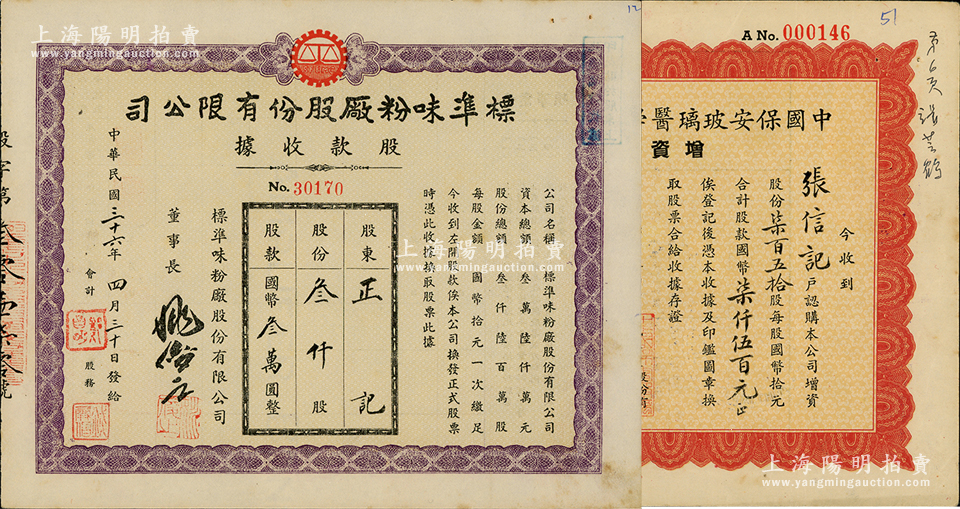 上海陽明拍賣
www.yangmingauction.com
12
標準味粉廠股份有限公司
股款收據
No. 30170
公司名稱 標準味粉廠股份有限公司
資本總額 叁萬陸仟萬元
股份總額 叁仟陸百萬股
每股金額 國幣拾元一次繳足
今收到左開股款俟本公司換發正式股票
時憑此收據換取股票此據
股東 正記
股份 叁仟股
股款 國幣叁萬圓整
標準味粉廠股份有限公司
董事長
會計
股務
中華民國三十六年四月三十日發給
51
A No. 000146
中國保安玻璃醫
增資
今收到
張信記戶認購本公司增資
股份柒百五拾股每股國幣拾元
合計股款國幣柒仟伍百元正
俟登記後憑本收據及印鑑圖章換
取股票合給收據存證
上海陽明拍賣
www.yangmingauction.com
上海陽明拍賣
www.yangmingauction.com